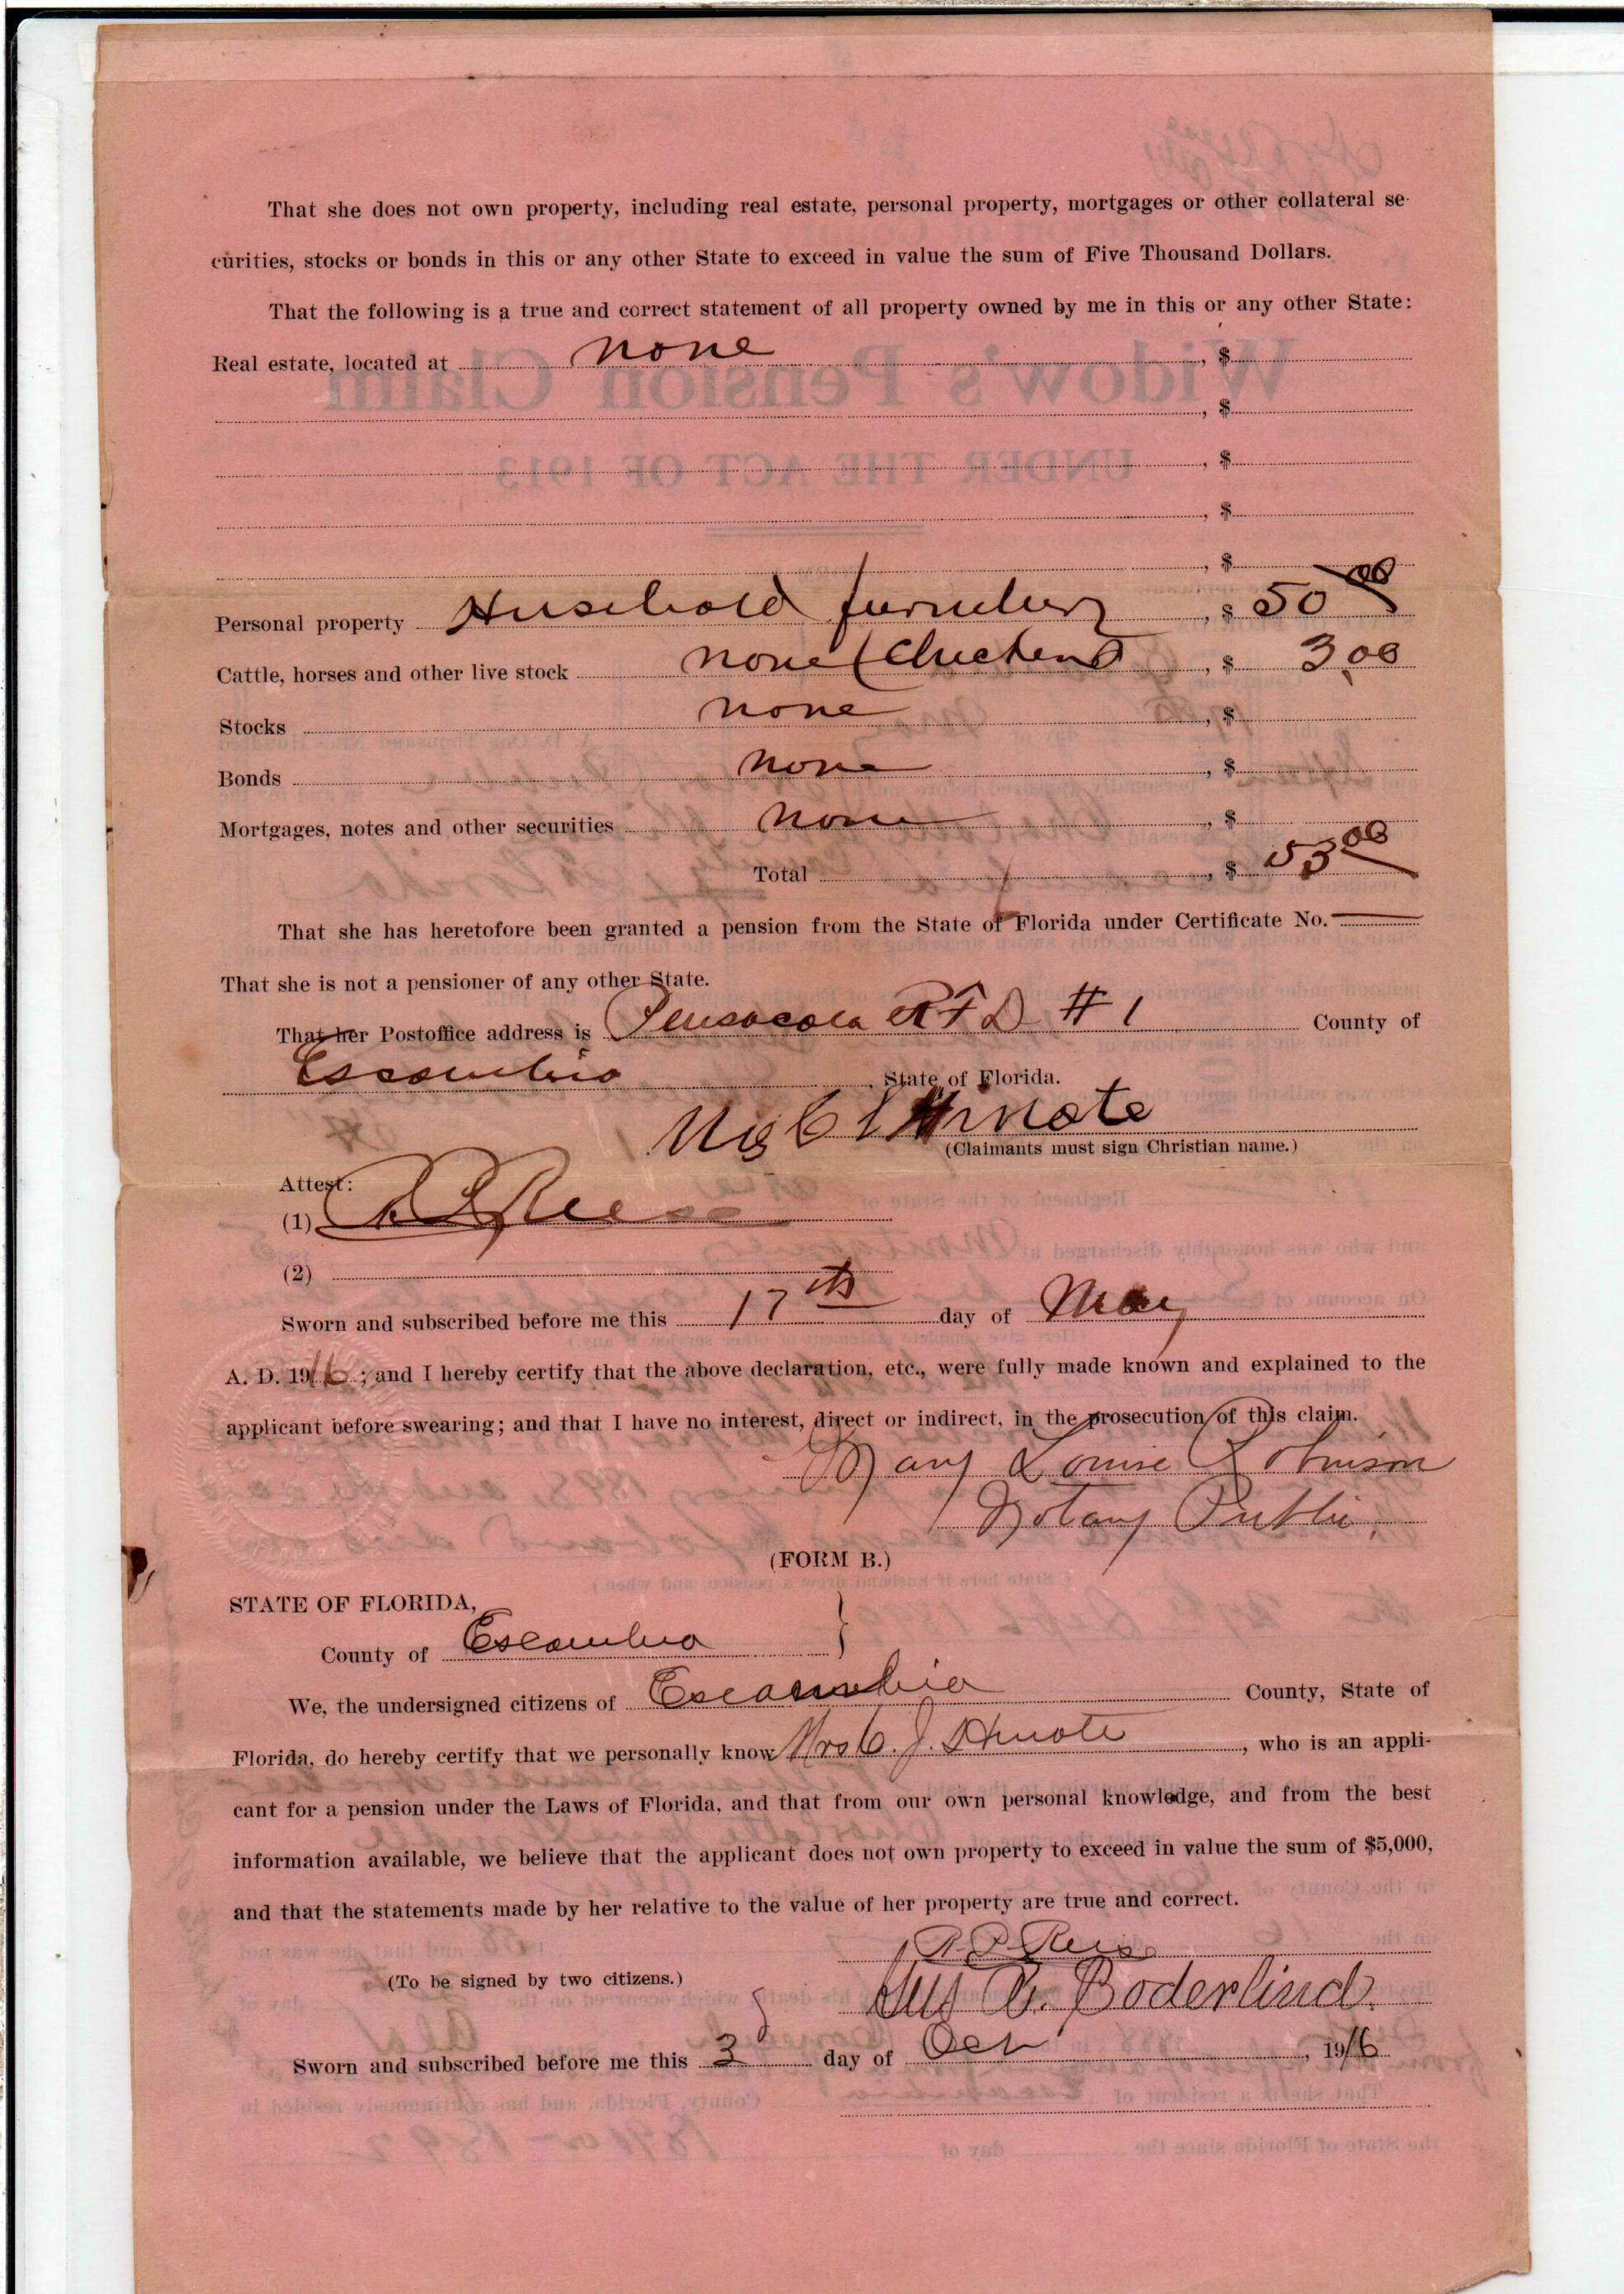 That she does not own property, including real estate, personal property, mortgages or other collateral se-
curities, stocks or bonds in this or any other State to exceed in value the sum of Five Thousand Dollars.
That the following is a true and correct statement of all property owned by me in this or any other State:
Real estate, located at none , $
, $
, $
, $
, $
Personal property Household furniture , $ 50 00
Cattle, horses and other live stock none (Chickens) , $ 3.00
Stocks none , $
Bonds none , $
Mortgages, notes and other securities none , $
Total , $ 53 00
That she has heretofore been granted a pension from the State of Florida under Certificate No. —
That she is not a pensioner of any other State.
That her Postoffice address is Pensacola RFD #1 County of
Escambia , State of Florida.
Mrs C J Hinote
(Claimants must sign Christian name.)
Attest:
(1) Reese
(2)
Sworn and subscribed before me this 17th day of May
A. D. 1916 ; and I hereby certify that the above declaration, etc., were fully made known and explained to the
applicant before swearing; and that I have no interest, direct or indirect, in the prosecution of this claim.
Mary Louise Robinson
Notary Public.
(FORM B.)
STATE OF FLORIDA,
County of Escambia }
We, the undersigned citizens of Escambia County, State of
Florida, do hereby certify that we personally know Mrs C. J. Hinote , who is an appli-
cant for a pension under the Laws of Florida, and that from our own personal knowledge, and from the best
information available, we believe that the applicant does not own property to exceed in value the sum of $5,000,
and that the statements made by her relative to the value of her property are true and correct.
Reese
(To be signed by two citizens.)
Boderlind.
Sworn and subscribed before me this 3 day of Oct , 1916